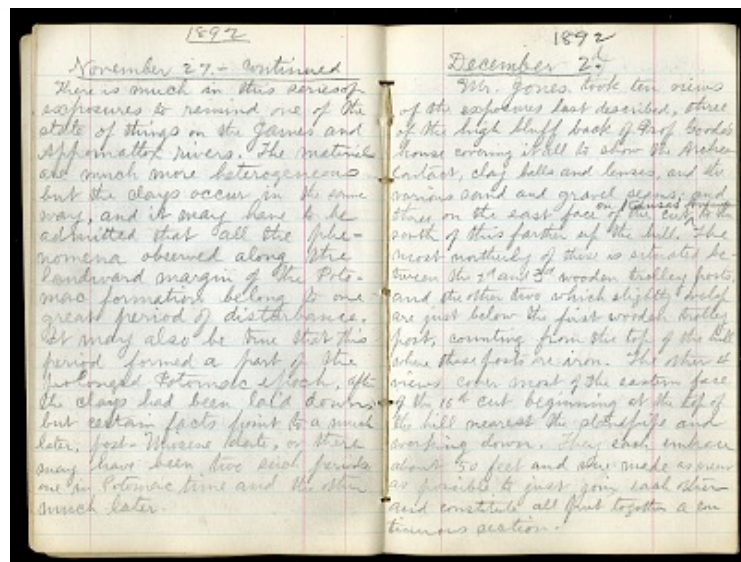 1892
November 27. - continued
There is much in this series of
exposures to remind one of the
state of things on the James and
Appomattox rivers. The material
are much more heterogeneous
but the clays occur in the same
way, and it may have to be
admitted that all the phe-
nomena observed along the
landward margin of the Poto-
mac formation belong to one
great period of disturbance.
It may also be true that this
period formed a part of the
prolonged Potomac epoch, after
the clays had been laid down,
but certain facts point to a much
later, post-Miocene date, or there
may have been two such periods
one in Potomac time and the other
much later.
1892
December 2d.
Mr. Jones took ten views
of the exposures last described, three
of the high bluff back of Prof Goode's
house covering it all to show the
contact, clay balls and lenses, and the
various sand and gravel seams; and
three on the east face of the cut to the
south of this farther up the hill. The
most northerly of these is situated be-
tween the 2d and 3d wooden trolley posts,
and the other two which slightly
are just below the first wooden trolley
post, counting from the top of the hill
where these posts are iron. The other 4
views cover most of the eastern face
of the 16th cut beginning at the top of
the hill nearest the standpipe and
working down. They each embrace
about 50 feet and were made as near
as possible to just join each other
and constitute all put together a con
tinuous section.